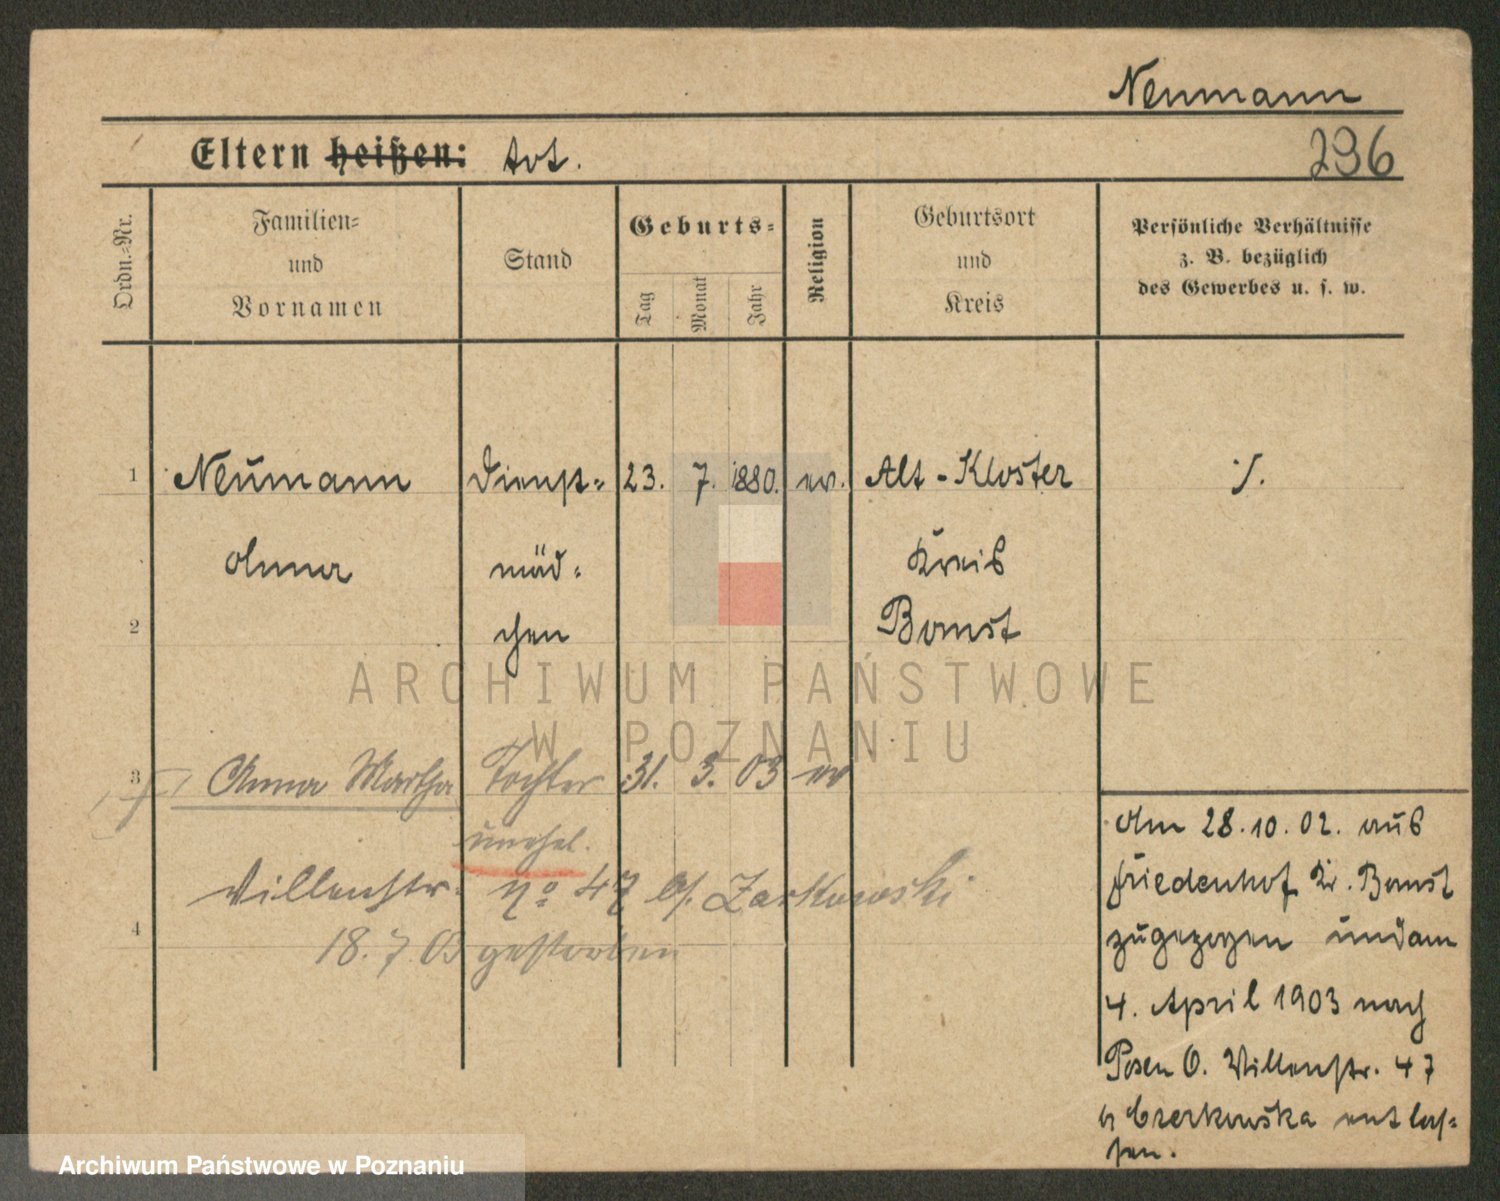 Neumann
Eltern heißen: tot.
236
Ordn.-Nr.
Familien-
und
Vornamen
Stand
Geburts-
Tag
Monat
Jahr
Religion
Geburtsort
und
Kreis
Persönliche Verhältnisse
z. B. bezüglich
des Gewerbes u. s. w.
1 Neumann Dienst- 23. 7. 1880. ev. Alt-Kloster ./.
Anna mäd- Kreis
2 chen Bomst
ARCHIWUM PAŃSTWOWE
W POZNANIU
3 Anna Martha Tochter 31. 3. 03 ev
unehel.
Villenstr. No 47 b/. Zarkowski
4 18. 7 03 gestorben
Am 28.10.02. aus
Friedenhof Kr. Bomst
zugezogen und am
4. April 1903 nach
Posen O. Villenstr. 47
b Czerkowska entlas-
sen.
Archiwum Państwowe w Poznaniu